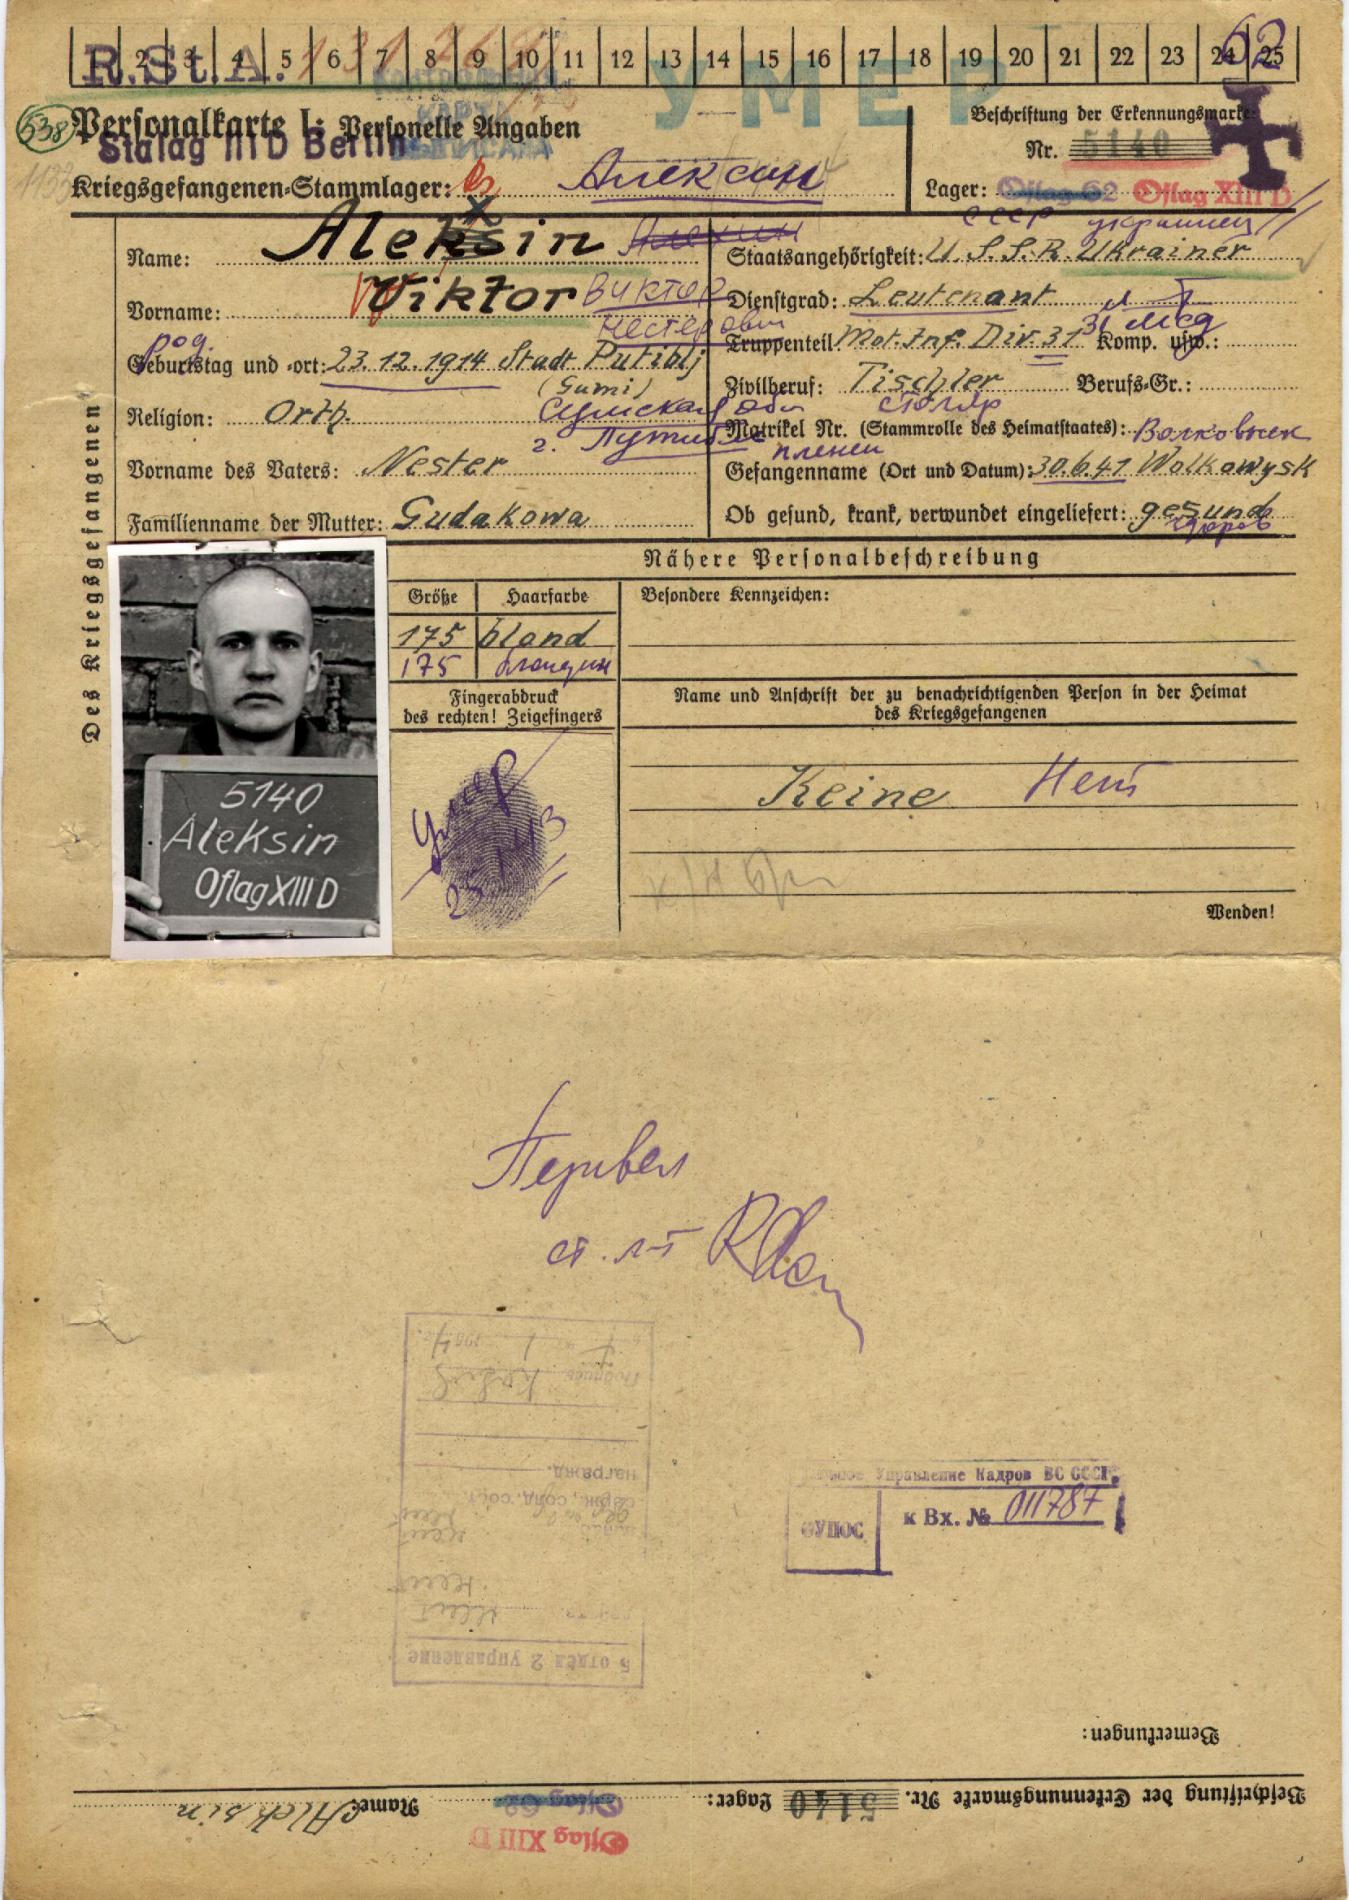 1 2 3 4 5 6 7 8 9 10 11 12 13 14 15 16 17 18 19 20 21 22 23 24 25
R.St.A. 62
УМЕР
КАРТА
538 Personalkarte I: Personelle Angaben
Beschriftung der Erkennungsmarke
Stalag III D Berlin
Nr. 5140
Kriegsgefangenen-Stammlager: Алексин
Lager: Oflag 62 Oflag XIII D
Des Kriegsgefangenen
Name: Aleksin
СССР украинец
Staatsangehörigkeit: U.S.S.R. Ukrainer
Vorname: Viktor Виктор
Нестерович
Dienstgrad: Leutenant л-т
Truppenteil: Mot. Inf. Div. 31 31 мсд Komp. usw.:
род.
Geburtstag und -ort: 23.12.1914 Stadt Putiblj
(Sumi)
Zivilberuf: Tischler Berufs-Gr.:
столяр
Religion: Orth. Сумская обл
г. Путивль
Matrikel Nr. (Stammrolle des Heimatstaates): Волковыск
пленен
Vorname des Vaters: Nester
Gefangenname (Ort und Datum): 30.6.41 Wolkawysk
Familienname der Mutter: Gudakowa
Ob gesund, krank, verwundet eingeliefert: gesund
здоров
Nähere Personalbeschreibung
Größe Haarfarbe
Besondere Kennzeichen:
175 blond
175 блондин
Fingerabdruck
des rechten! Zeigefingers
Name und Anschrift der zu benachrichtigenden Person in der Heimat
des Kriegsgefangenen
5140
Aleksin
Oflag XIII D
умер
25.1.43
Keine Нет
Wenden!
Перевел
ст. л-т
Управление Кадров ВС СССР
ОУПОС к Вх. № 011787
Подпись
награжд.
серж., солд. сост.
нет
нет
5 отдел 2 управление
Bemerkungen:
Beschriftung der Erkennungsmarke Nr. 5140 Lager: Oflag 62 Name: Aleksin
Oflag XIII D